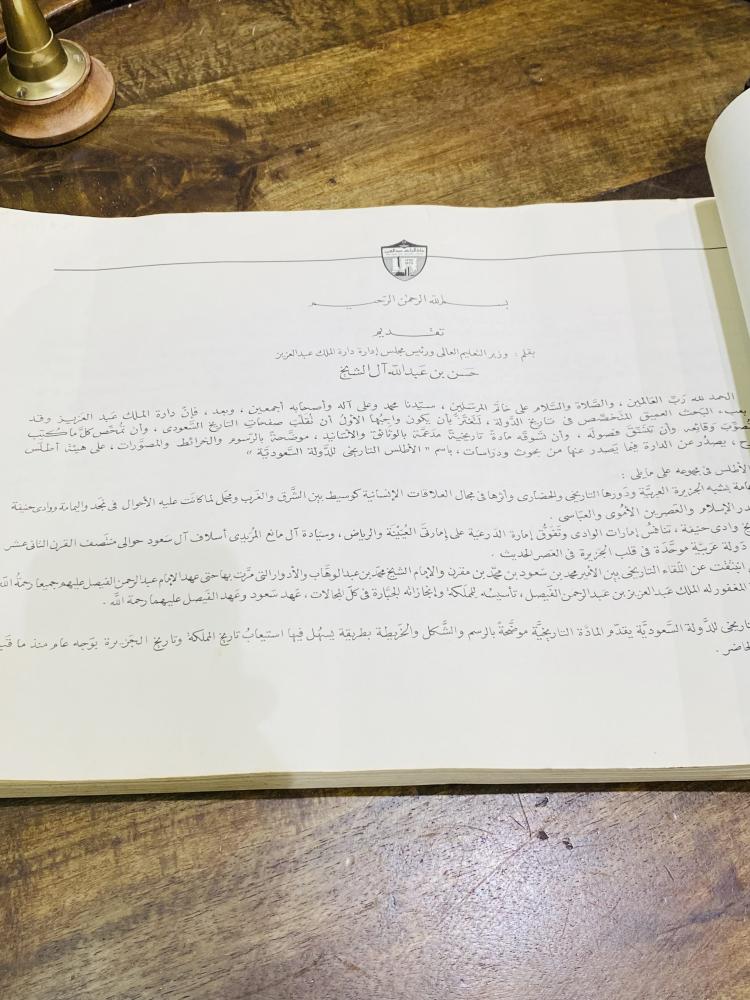 بسم الله الرحمن الرحيم
تقديم
بقلم : وزير التعليم العالى ورئيس مجلس إدارة دارة الملك عبدالعزيز
حسن بن عبدالله آل الشيخ
الحمد لله ربّ العالمين ، والصّلاة والسّلام على خاتم المرسلين ، سيّدنا محمد وعلى آله وأصحابه أجمعين ، وبعد ، فإنّ دارة الملك عبد العزيز وقد
البحث العميق المتخصّص فى تاريخ الدّولة ، لتعتزّ بأن يكون واجبها الأول أن تُقلّب صفحات التاريخ السّعودى ، وأن تمحّص كلّ ما كُتب
وقائعه وأن فصوله ، وأن تسوقه مادة تاريخيّة مدعّمة بالوثائق والأسانيد ، موضّحة بالرّسوم والخرائط والمصوّرات ، على هيئة أطلس
، يصدر عن الدارة فيما يصدر عنها من بحوث ودراسات ، باسم " الأطلس التاريخى للدّولة السّعوديّة "
الأطلس فى مجموعه على مايلى :
شبه الجزيرة العربيّة ودورها التاريخى والحضارى وأثرها فى مجال العلاقات الإنسانية كوسيط بين الشّرق والغرب ومجمل لما كانت عليه الأحوال فى نجد واليمامة ووادى حنيفة
الإسلام والعصرين الأموى والعباسى .
وادى حنيفة ، تنافس إمارات الوادى وتفوّق إمارة الدّرعيّة على إمارتى العُيَيْنة والرياض ، وسيادة آل مانع المُريدى أسلاف آل سعود حوالى منتصف القرن الثانى عشر
دولة عربيّة موحّدة فى قلب الجزيرة فى العصر الحديث .
انبثقت عن اللّقاء التاريخى بين الأمير محمد بن سعود بن محمّد بن مقرن والإمام الشيخ محمّد بن عبدالوهّاب والأدوار التى مرّت بها حتى عهد الإمام عبدالرحمن الفيصل عليهم جميعا رحمة الله
المغفور له الملك عبدالعزيز بن عبدالرحمن الفيصل ، تأسيسه للمملكة وإنجازاته الجبّارة فى كلّ المجالات ، عهد سعود وعهد الفيصل عليهما رحمة الله .
للدّولة السّعوديّة يقدّم المادّة التاريخيّة موضّحة بالرسم والشّكل والخريطة بطريقة يسهل فيها استيعاب تاريخ المملكة وتاريخ الجزيرة بوجه عام منذ ما